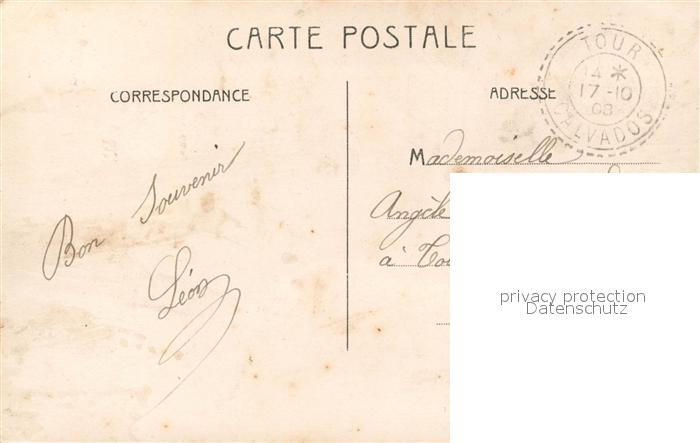 CARTE POSTALE
TOUR
14 *
17-10
08
CALVADOS
CORRESPONDANCE
ADRESSE
Bon Souvenir
Léon
Mademoiselle
Angèle
à
privacy protection
Datenschutz